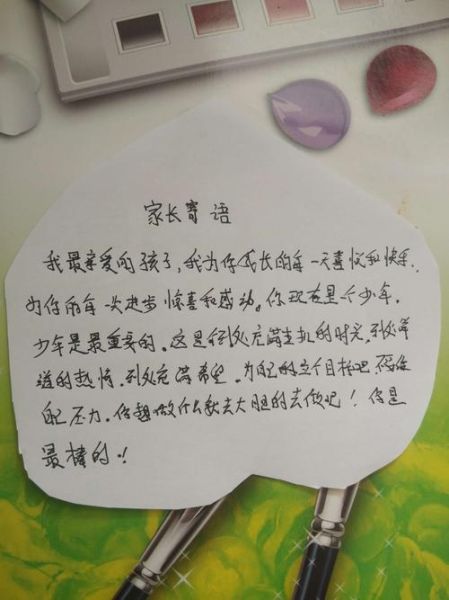 家长寄语
我最亲爱的孩子,我为你成长的每一天喜悦和快乐,
为你的每一次进步惊喜和感动。你现在是个少年,
少年是最重要的。这是到处充满生机的时光,到处
道的热情,到处充满希望。为自己的立个目标吧 不给
自己压力。你想做什么就去大胆的去做吧!你是
最棒的!